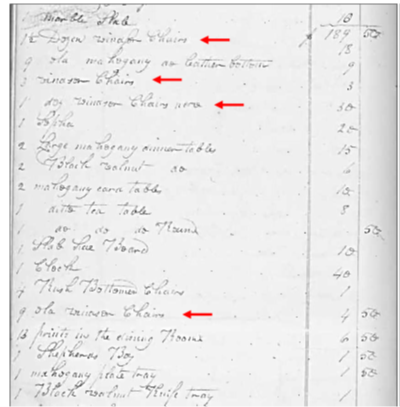 1 marble Slab 10
1½ Dozen winsor Chairs 18
9 old mahogany do Leather bottom 9
3 winsor Chairs 3
1 doz winsor Chairs 30
1 Sopha 20
2 Large mahogany dinner tables 15
2 Black walnut do 6
2 mahogany card tables 10
1 ditto tea table 8
1 do do do Round 50
1 Slab Side Board 10
1 Clock 40
4 Rush Bottomed Chairs 1
9 old winsor Chairs 4 50
13 prints in the dining Room 6 50
1 Shepherds Boy 1 50
1 mahogany plate tray 1 50
1 Black walnut Knife tray 1